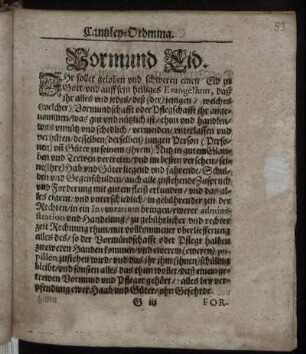 Cantzley-Ordnung.
53
Vormund Eid.
IHr sollet geloben vnd schweren einen Eid zu
Gott / vnd auff sein heiliges Evangelium, daß
ihr alles vnd jedes / deß (der / jenigen / welches
(welcher) Vormundschafft oder Pflegschafft ihr ange-
nommen / was gut vnd nützlich ist / thun vnd handlen /
was vnnütz vnd schedlich / vermeiden / vnterlassen vnd
verhüten / desselben (derselben) jungen Person (Perso-
nen) vñ Güter zu seinem (ihrem) Nutz in gutem Glau-
ben vnd Trewen vertretten / vnd im besten versehen / sei-
ne (ihre) Haab vnd Güter ligende vnd fahrende / Schul-
den vnd Gegenschulden / auch alle zustehende Zuspruch
vnd Forderung mit gutem fleiß erkunden / vnd das al-
les eigent: vnd vnterschiedlich / in gebührender zeit der
Rechten / in ein Inventarium bringen / ewerer admini-
stration vnd Handelung / zu gebührlicher vnd rechter
zeit Rechnung thun / mit vollkommener vberliefferung
alles deß / so der Vormundschafft oder Pflege halben
zu ewern Handen kommen / vnd ewerem (eweren) pu-
pillen zustehen wird / vnd das ihr ihm (ihnen) schuldig
bleibt / vnd sonsten alles das thun wollet / daß einem ge-
trewen Vormund vnd Pfleger gehört / alles bey ver-
pfendung ewer Haab vnd Güter / ohn Gefehrde.
G iij
FOR-